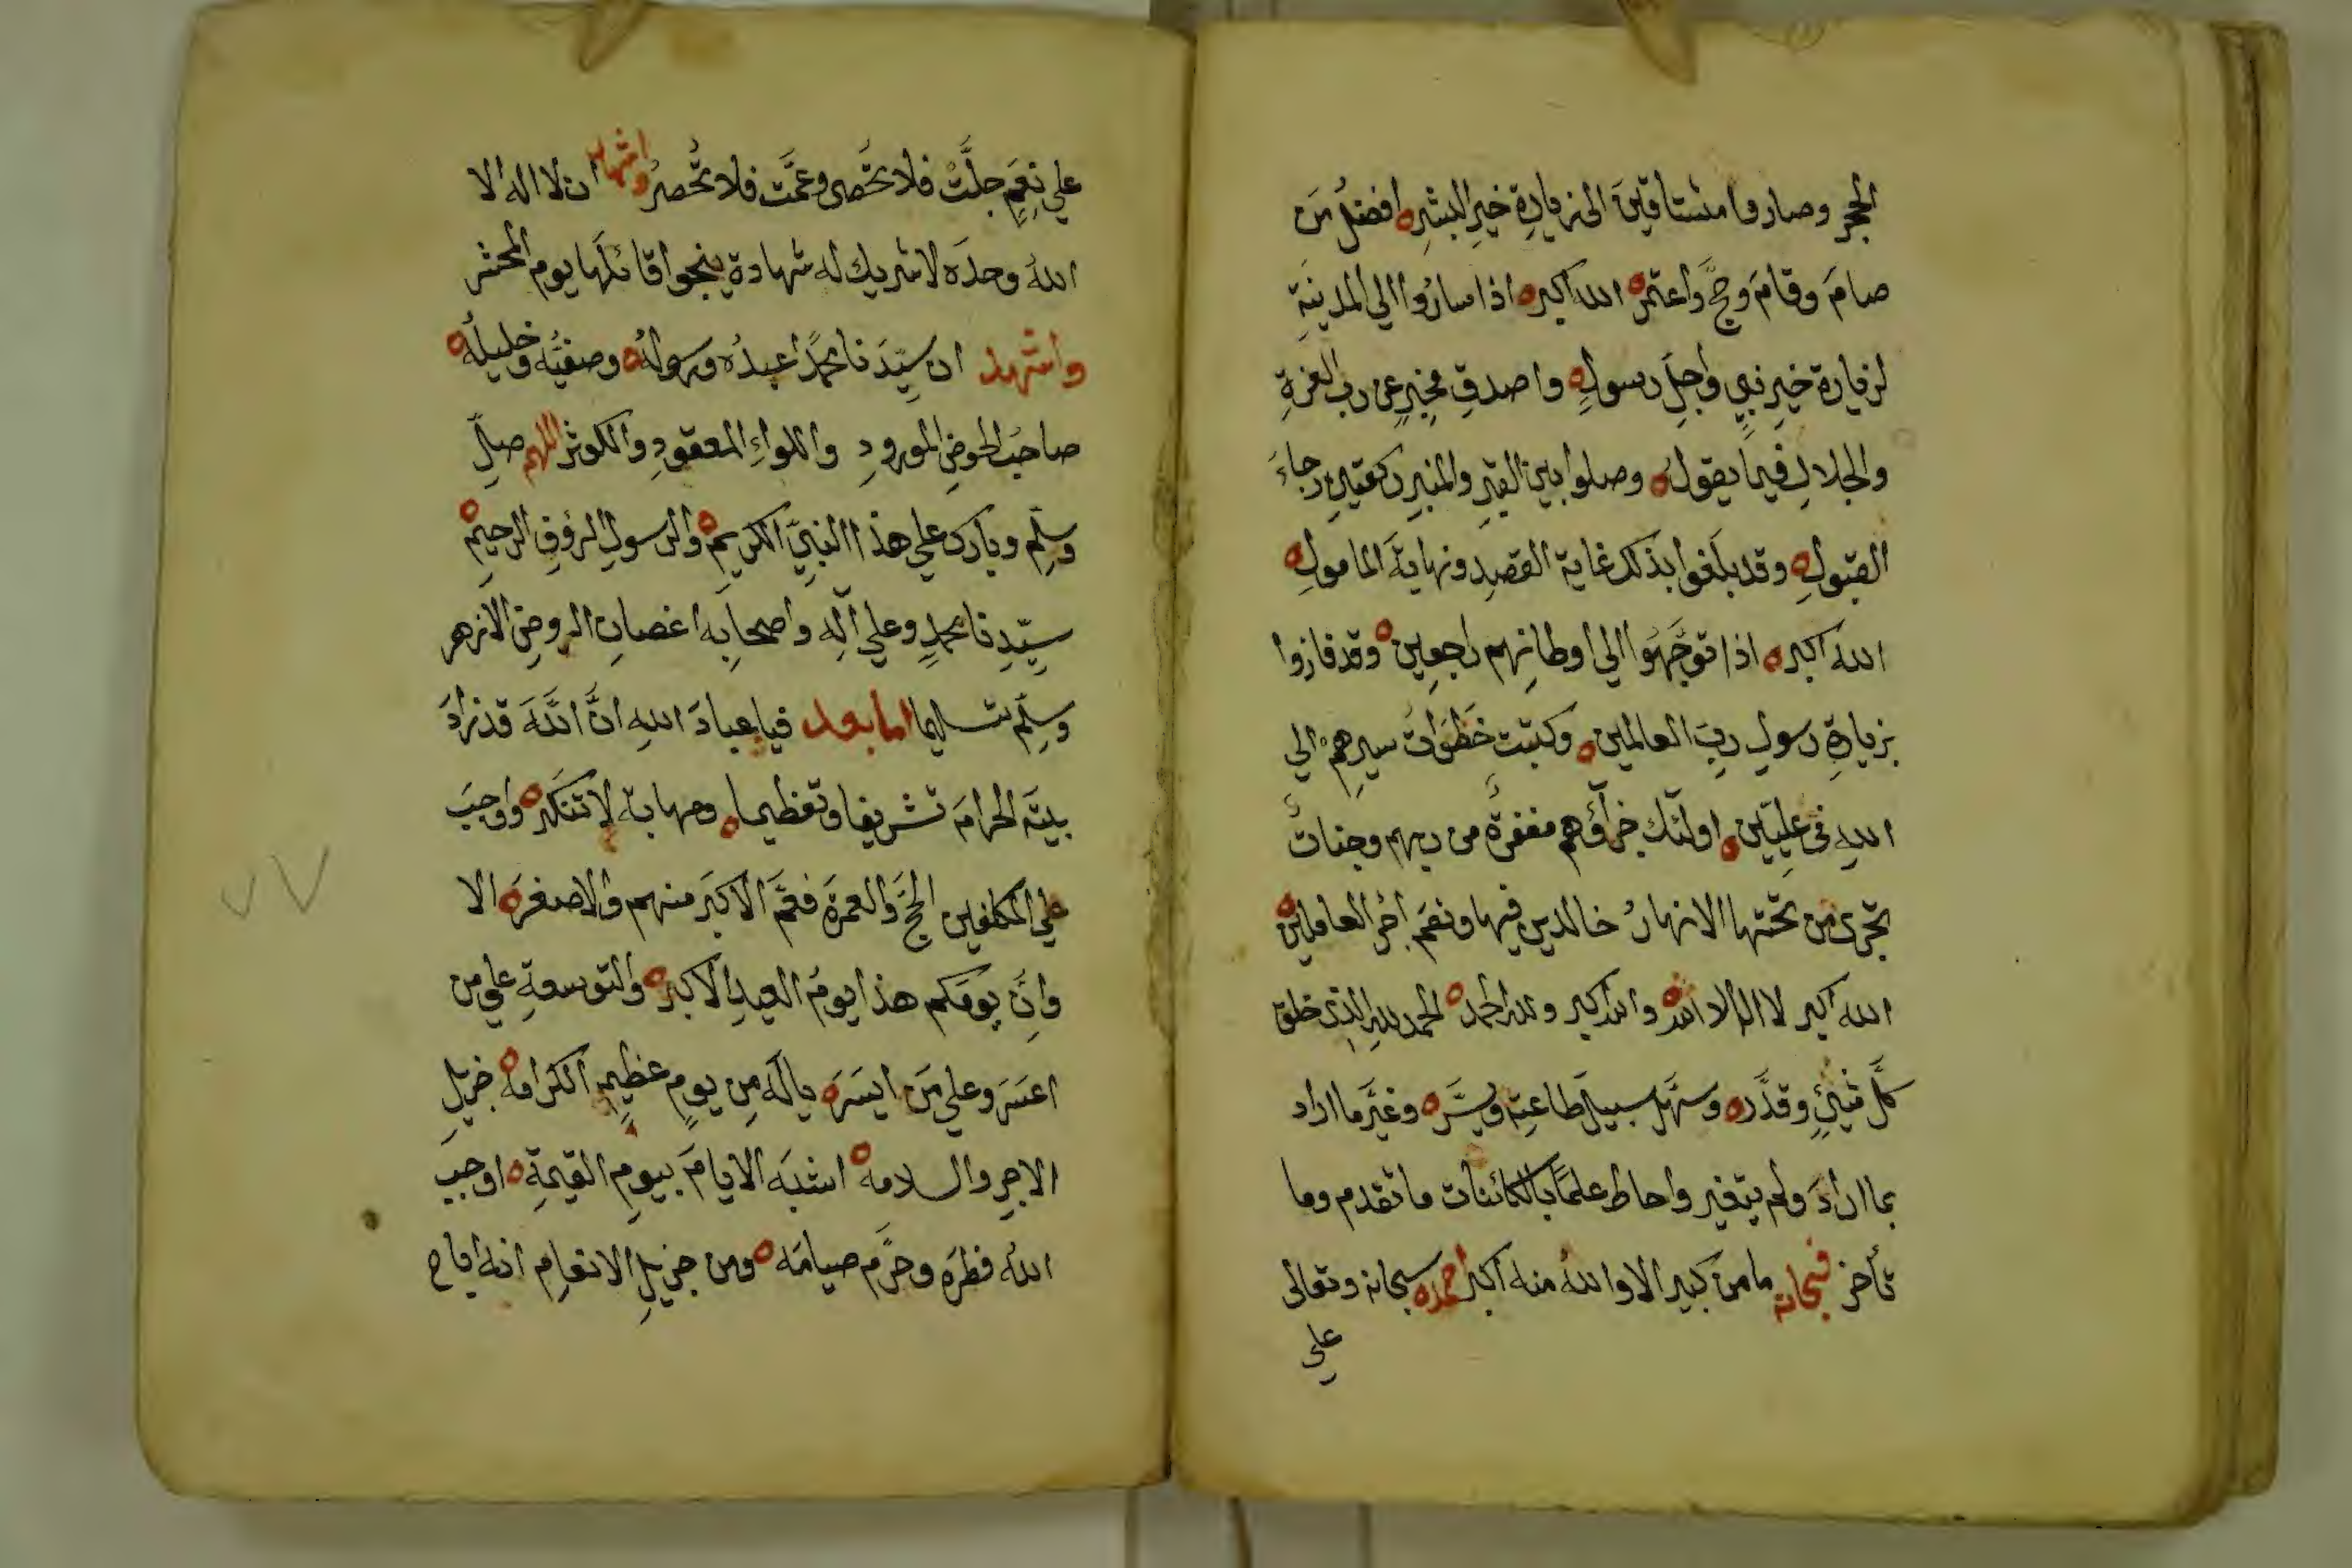 الحجر وصاروا مشتاقين الى زيارة خير البشر ه افضل من
صام وقام وحج واعتمر ه الله اكبر ه اذا ساروا الي المدينة
لزيارة خير نبي واجل رسول ه واصدق مخبر عن رب العزة
والجلال فيما يقول ه وصلوا بين القبر والمنبر ركعتين رجاء
القبول ه وقد بلغوا بذلك غاية القصد ونهاية المامول ه
الله اكبر ه اذا توجهوا الي اوطانهم راجعين ه وقد فازوا
بزيارة رسول رب العالمين ه وكتبت خطوات سيرهم الي
الله في عليين ه اولئك جزآؤهم مغفرة من ربهم وجنات
تجرى من تحتها الانهار خالدين فيها ونعم اجر العاملين ه
الله اكبر لا اله الا الله ه والله اكبر ولله الحمد ه الحمد لله الذى خلق
كل شيئ وقدره ه وسهل سبيل طاعته ويسره ه وغير ما اراد
بما اراد ولم يتغير واحاط علما بالكائنات ما تقدم وما
تأخر فسبحانه ما من كبير الا والله منه اكبر احمده سبحانه وتعالى
علي
علي نعم جلت فلا تحصى وعمت فلا تحصر واشهد ان لا اله الا
الله وحده لا شريك له شهادة ينجوا قائلها يوم المحشر
واشهد ان سيدنا محمدا عبده ورسوله ه وصفيه وخليله ه
صاحب الحوض المورود واللواء المعقود والكوثر اللهم صل
وسلم وبارك علي هذا النبي الكريم ه والرسول الرؤف الرحيم ه
سيدنا محمد وعلي آله واصحابه اغصان الروض الازهر
وسلم تسليما اما بعد فيا عباد الله ان الله قد زاد
بيته الحرام تشريفا وتعظيما ه ومهابة لا تنكر ه واوجب
علي المكلفين الحج والعمرة فعم الاكبر منهم والاصغر ه الا
وان يومكم هذا يوم العيد الاكبر ه والتوسعة علي من
اعسر وعلي من ايسر ه ياله من يوم عظيم الكرامه ه جزيل
الاجر والسلامه ه اشبه الايام بيوم القيمة ه اوجب
الله فطره وحرم صيامه ه ومن جزيل الانعام انه اباح